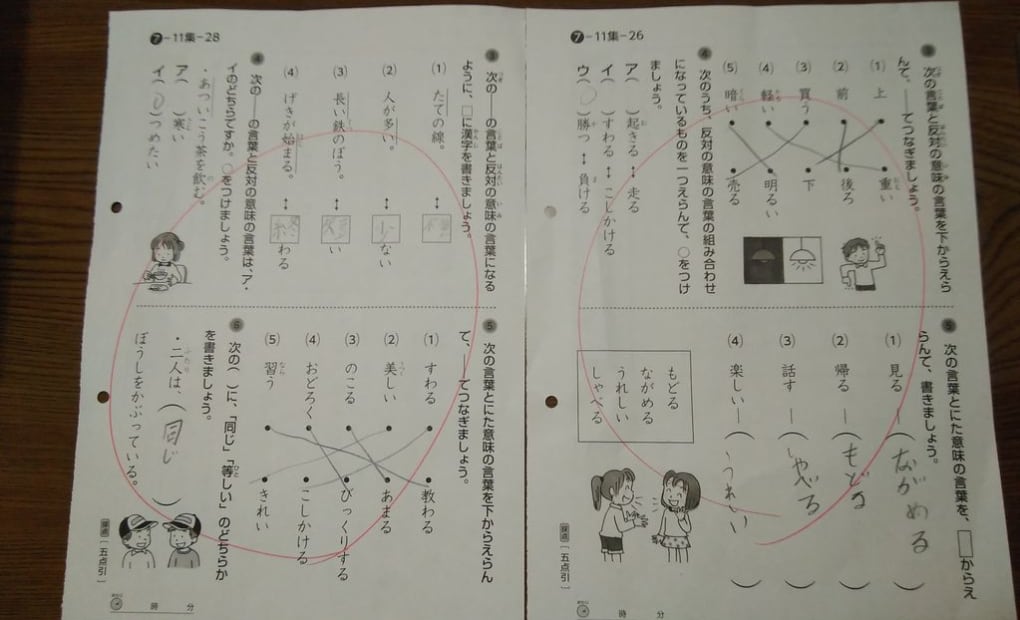 ❼-11集-26
③ 次の言葉と反対の意味の言葉を下からえらんで、――でつなぎましょう。
(1) 上
(2) 前
(3) 買う
(4) 軽い
(5) 暗い
重い
後ろ
下
明るい
売る
④ 次のうち、反対の意味の言葉の組み合わせになっているものを一つえらんで、○をつけましょう。
ア( )起きる ↔ 走る
イ( )すわる ↔ こしかける
ウ(○)勝つ ↔ 負ける
⑤ 次の言葉とにた意味の言葉を、□からえらんで、書きましょう。
(1) 見る ―(ながめる)
(2) 帰る ―(もどる)
(3) 話す ―(しゃべる)
(4) 楽しい―(うれしい)
もどる
ながめる
うれしい
しゃべる
採点 [五点引]
時 分
❼-11集-28
③ 次の――の言葉と反対の意味の言葉になるように、□に漢字を書きましょう。
(1) たての線。 ↔
(2) 人が多い。 ↔ 少ない
(3) 長い鉄のぼう。 ↔ い
(4) げきが始まる。 ↔ 終わる
④ 次の――の言葉と反対の意味の言葉は、ア・イのどちらですか。○をつけましょう。
・あついこう茶を飲む。
ア( )寒い
イ(○)つめたい
⑤ 次の言葉とにた意味の言葉を下からえらんで、――でつなぎましょう。
(1) すわる
(2) 美しい
(3) のこる
(4) おどろく
(5) 習う
教わる
あまる
びっくりする
こしかける
きれい
⑥ 次の( )に、「同じ」「等しい」のどちらかを書きましょう。
・二人は、(同じ)
ぼうしをかぶっている。
採点 [五点引]
時 分